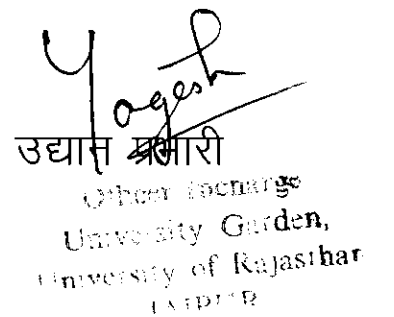 Yogesh
उद्यान प्रभारी
Officer Incharge
University Garden,
University of Rajasthan
JAIPUR